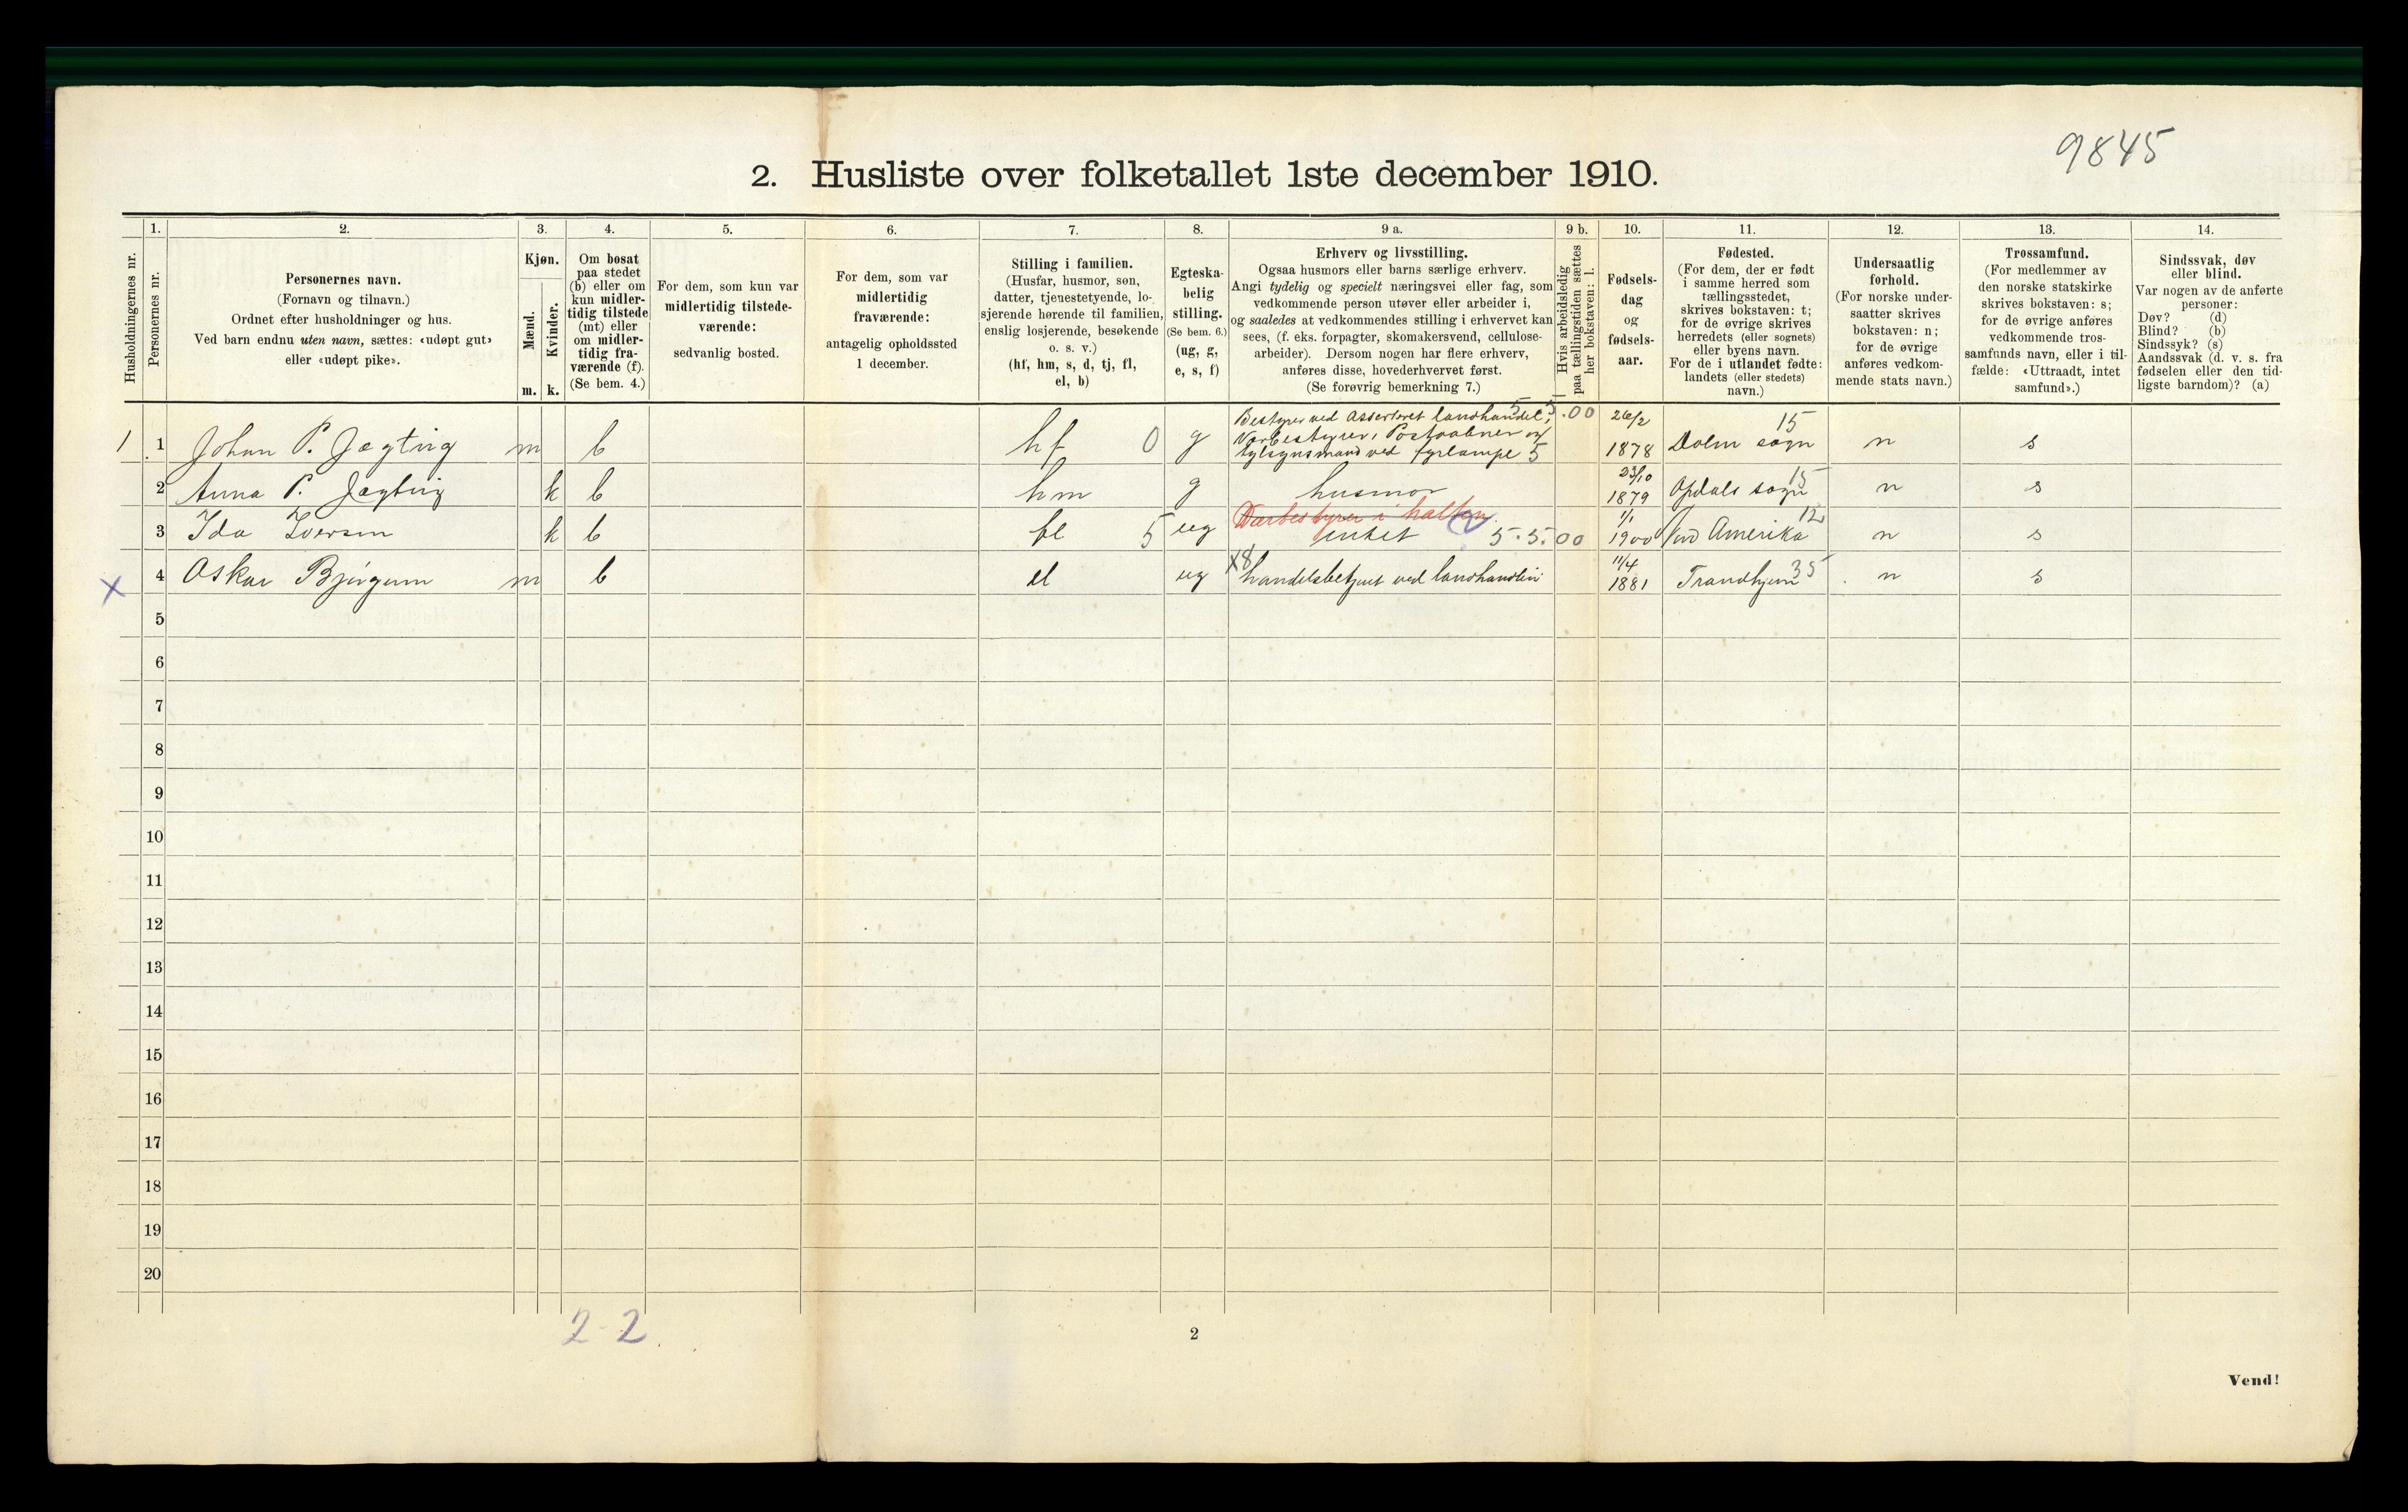 9845
2. Husliste over folketallet 1ste december 1910.
Husholdningernes nr.
1.
Personernes nr.
2.
Personernes navn.
(Fornavn og tilnavn.)
Ordnet efter husholdninger og hus.
Ved barn endnu uten navn, sættes: «udøpt gut»
eller «udøpt pike».
3.
Kjøn.
Mænd.
Kvinder.
m. k.
4.
Om bosat
paa stedet
(b) eller om
kun midler-
tidig tilstede
(mt) eller
om midler-
tidig fra-
værende (f).
(Se bem. 4.)
5.
For dem, som kun var
midlertidig tilstede-
værende:
sedvanlig bosted.
6.
For dem, som var
midlertidig
fraværende:
antagelig opholdssted
1 december.
7.
Stilling i familien.
(Husfar, husmor, søn,
datter, tjenestetyende, lo-
sjerende hørende til familien,
enslig losjerende, besøkende
o. s. v.)
(hf, hm, s, d, tj, fl,
el, b)
8.
Egteska-
belig
stilling.
(Se bem. 6.)
(ug, g,
e, s, f)
9 a.
Erhverv og livsstilling.
Ogsaa husmors eller barns særlige erhverv.
Angi tydelig og specielt næringsvei eller fag, som
vedkommende person utøver eller arbeider i,
og saaledes at vedkommendes stilling i erhvervet kan
sees, (f. eks. forpagter, skomakersvend, cellulose-
arbeider). Dersom nogen har flere erhverv,
anføres disse, hovederhvervet først.
(Se forøvrig bemerkning 7.)
9 b.
Hvis arbeidsledig
paa tællingstiden sættes
her bokstaven: l.
10.
Fødsels-
dag
og
fødsels-
aar.
11.
Fødested.
(For dem, der er født
i samme herred som
tællingsstedet,
skrives bokstaven: t;
for de øvrige skrives
herredets (eller sognets)
eller byens navn.
For de i utlandet fødte:
landets (eller stedets)
navn.)
12.
Undersaatlig
forhold.
(For norske under-
saatter skrives
bokstaven: n;
for de øvrige
anføres vedkom-
mende stats navn.)
13.
Trossamfund.
(For medlemmer av
den norske statskirke
skrives bokstaven: s;
for de øvrige anføres
vedkommende tros-
samfunds navn, eller i til-
fælde: «Uttraadt, intet
samfund».)
14.
Sindssvak, døv
eller blind.
Var nogen av de anførte
personer:
Døv? (d)
Blind? (b)
Sindssyk? (s)
Aandssvak (d. v. s. fra
fødselen eller den tid-
ligste barndom)? (a)
1 1 Johan P. Jægtvig m b hf 0 g Bestyrer ved Assorteret landhandel, 5 5.00 26/2
Værbestyrer, Postaabner og
tylsynsmand ved fyrlampe 5 1878 Dolm sogn 15 n s
2 Anna P. Jægtvig k b hm g husmor 23/10 1879 Opdals sogn 15 n s
Værbestyrer i halten
3 Ida Iversen k b fl 5 ug intet 5.5.00 1/1 1900 Nord Amerika 12 n s
x 4 Oskar Bjørgum m b el ug x8 handelsbetjent ved landhandleri 11/4 1881 Trondhjem 35 n s
5
6
7
8
9
10
11
12
13
14
15
16
17
18
19
20
2-2
2
Vend!